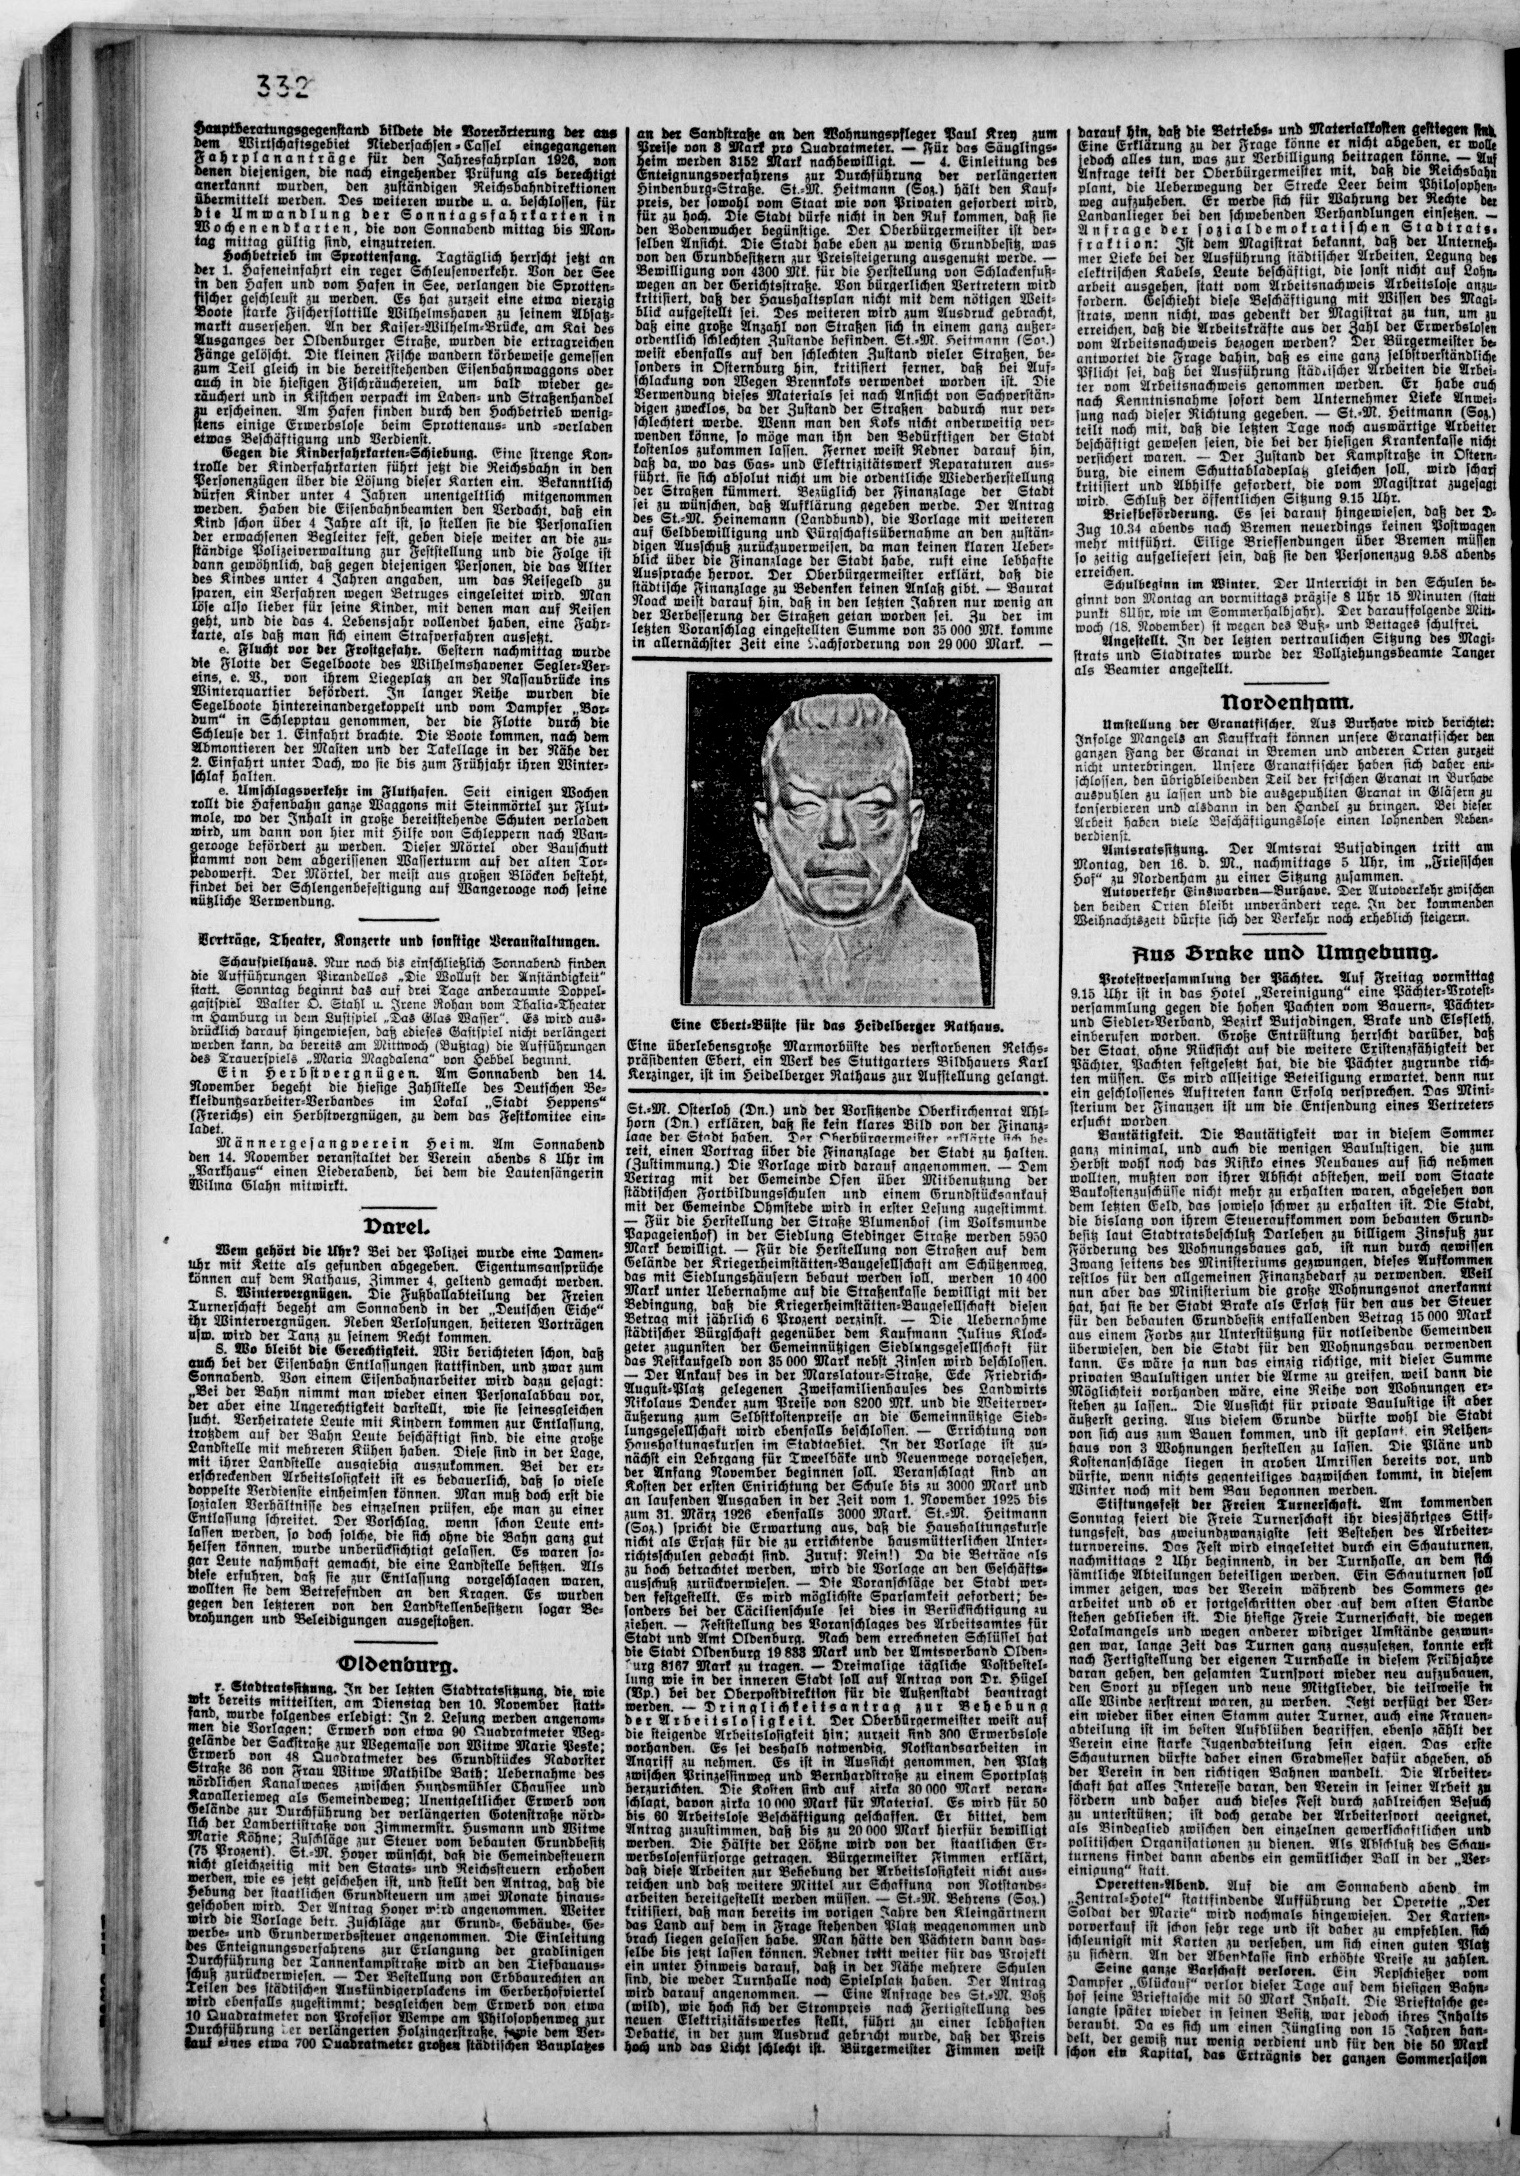 332
Hauptberatungsgegenstand bildete die Vorerörterung der aus
dem Wirtschaftsgebiet Niedersachsen-Cassel eingegangenen
Fahrplananträge für den Jahresfahrplan 1926, von
denen diejenigen, die nach eingehender Prüfung als berechtigt
anerkannt wurden, den zuständigen Reichsbahndirektionen
übermittelt werden. Des weiteren wurde u. a. beschlossen, für
die Umwandlung der Sonntagsfahrkarten in
Wochenendkarten, die von Sonnabend mittag bis Mon-
tag mittag gültig sind, einzutreten.
Hochbetrieb im Sprottenfang. Tagtäglich herrscht jetzt an
der 1. Hafeneinfahrt ein reger Schleusenverkehr. Von der See
in den Hafen und vom Hafen in See, verlangen die Sprotten-
fischer geschleust zu werden. Es hat zurzeit eine etwa vierzig
Boote starke Fischerflottille Wilhelmshaven zu seinem Absatz-
markt ausersehen. An der Kaiser-Wilhelm-Brücke, am Kai des
Ausganges der Oldenburger Straße, wurden die ertragreichen
Fänge gelöscht. Die kleinen Fische wandern körbeweise gemessen
zum Teil gleich in die bereitstehenden Eisenbahnwaggons oder
auch in die hiesigen Fischräuchereien, um bald wieder ge-
räuchert und in Kistchen verpackt im Laden- und Straßenhandel
zu erscheinen. Am Hafen finden durch den Hochbetrieb wenig-
stens einige Erwerbslose beim Sprottenaus- und -verladen
etwas Beschäftigung und Verdienst.
Gegen die Kinderfahrkarten-Schiebung. Eine strenge Kon-
trolle der Kinderfahrkarten führt jetzt die Reichsbahn in den
Personenzügen über die Lösung dieser Karten ein. Bekanntlich
dürfen Kinder unter 4 Jahren unentgeltlich mitgenommen
werden. Haben die Eisenbahnbeamten den Verdacht, daß ein
Kind schon über 4 Jahre alt ist, so stellen sie die Personalien
der erwachsenen Begleiter fest, geben diese weiter an die zu-
ständige Polizeiverwaltung zur Feststellung und die Folge ist
dann gewöhnlich, daß gegen diejenigen Personen, die das Alter
des Kindes unter 4 Jahren angaben, um das Reisegeld zu
sparen, ein Verfahren wegen Betruges eingeleitet wird. Man
löse also lieber für seine Kinder, mit denen man auf Reisen
geht, und die das 4. Lebensjahr vollendet haben, eine Fahr-
karte, als daß man sich einem Strafverfahren aussetzt.
e. Flucht vor der Frostgefahr. Gestern nachmittag wurde
die Flotte der Segelboote des Wilhelmshavener Segler-Ver-
eins, e. V., von ihrem Liegeplatz an der Nassaubrücke ins
Winterquartier befördert. In langer Reihe wurden die
Segelboote hintereinandergekoppelt und vom Dampfer „Bor-
dum“ in Schlepptau genommen, der die Flotte durch die
Schleuse der 1. Einfahrt brachte. Die Boote kommen, nach dem
Abmontieren der Masten und der Takellage in der Nähe der
2. Einfahrt unter Dach, wo sie bis zum Frühjahr ihren Winter-
schlaf halten.
e. Umschlagsverkehr im Fluthafen. Seit einigen Wochen
rollt die Hafenbahn ganze Waggons mit Steinmörtel zur Flut-
mole, wo der Inhalt in große bereitstehende Schuten verladen
wird, um dann von hier mit Hilfe von Schleppern nach Wan-
gerooge befördert zu werden. Dieser Mörtel oder Bauschutt
stammt von dem abgerissenen Wasserturm auf der alten Tor-
pedowerft. Der Mörtel, der meist aus großen Blöcken besteht,
findet bei der Schlengenbefestigung auf Wangerooge noch seine
nützliche Verwendung.
Vorträge, Theater, Konzerte und sonstige Veranstaltungen.
Schauspielhaus. Nur noch bis einschließlich Sonnabend finden
die Aufführungen Pirandellos „Die Wollust der Anständigkeit“
statt. Sonntag beginnt das auf drei Tage anberaumte Doppel-
gastspiel Walter O. Stahl u. Irene Rohan vom Thalia-Theater
in Hamburg in dem Lustspiel „Das Glas Wasser“. Es wird aus-
drücklich darauf hingewiesen, daß edieses Gastspiel nicht verlängert
werden kann, da bereits am Mittwoch (Bußtag) die Aufführungen
des Trauerspiels „Maria Magdalena“ von Hebbel beginnt.
Ein Herbstvergnügen. Am Sonnabend den 14.
November begeht die hiesige Zahlstelle des Deutschen Be-
kleidungsarbeiter-Verbandes im Lokal „Stadt Heppens“
(Frerichs) ein Herbstvergnügen, zu dem das Festkomitee ein-
ladet.
Männergesangverein Heim. Am Sonnabend
den 14. November veranstaltet der Verein abends 8 Uhr im
„Parkhaus“ einen Liederabend, bei dem die Lautensängerin
Wilma Glahn mitwirkt.
Varel.
Wem gehört die Uhr? Bei der Polizei wurde eine Damen-
uhr mit Kette als gefunden abgegeben. Eigentumsansprüche
können auf dem Rathaus, Zimmer 4, geltend gemacht werden.
S. Wintervergnügen. Die Fußballabteilung der Freien
Turnerschaft begeht am Sonnabend in der „Deutschen Eiche“
ihr Wintervergnügen. Neben Verlosungen, heiteren Vorträgen
usw. wird der Tanz zu seinem Recht kommen.
S. Wo bleibt die Gerechtigkeit. Wir berichteten schon, daß
auch bei der Eisenbahn Entlassungen stattfinden, und zwar zum
Sonnabend. Von einem Eisenbahnarbeiter wird dazu gesagt:
„Bei der Bahn nimmt man wieder einen Personalabbau vor,
der aber eine Ungerechtigkeit darstellt, wie sie seinesgleichen
sucht. Verheiratete Leute mit Kindern kommen zur Entlassung,
trotzdem auf der Bahn Leute beschäftigt sind, die eine große
Landstelle mit mehreren Kühen haben. Diese sind in der Lage,
mit ihrer Landstelle ausgiebig auszukommen. Bei der er-
erschreckenden Arbeitslosigkeit ist es bedauerlich, daß so viele
doppelte Verdienste einheimsen können. Man muß doch erst die
sozialen Verhältnisse des einzelnen prüfen, ehe man zu einer
Entlassung schreitet. Der Vorschlag, wenn schon Leute ent-
lassen werden, so doch solche, die sich ohne die Bahn ganz gut
helfen können, wurde unberücksichtigt gelassen. Es waren so-
gar Leute nahmhaft gemacht, die eine Landstelle besitzen. Als
diese erfuhren, daß sie zur Entlassung vorgeschlagen waren,
wollten sie dem Betrefefnden an den Kragen. Es wurden
gegen den letzteren von den Landstellenbesitzern sogar Be-
drohungen und Beleidigungen ausgestoßen.
Oldenburg.
r. Stadtratssitzung. In der letzten Stadtratssitzung, die, wie
wir bereits mitteilten, am Dienstag den 10. November statt-
fand, wurde folgendes erledigt: In 2. Lesung werden angenom-
men die Vorlagen: Erwerb von etwa 90 Quadratmeter Weg-
gelände der Sackstraße zur Wegemasse von Witwe Marie Peske;
Erwerb von 48 Quadratmeter des Grundstückes Nadorster
Straße 36 von Frau Witwe Mathilde Bath; Uebernahme des
nördlichen Kanalweges zwischen Hundsmühler Chaussee und
Kavallerieweg als Gemeindeweg; Unentgeltlicher Erwerb von
Gelände zur Durchführung der verlängerten Gotenstraße nörd-
lich der Lambertistraße von Zimmermstr. Husmann und Witwe
Marie Köhne; Zuschläge zur Steuer vom bebauten Grundbesitz
(75 Prozent). St.-M. Hoyer wünscht, daß die Gemeindesteuern
nicht gleichzeitig mit den Staats- und Reichssteuern erhoben
werden, wie es jetzt geschehen ist, und stellt den Antrag, daß die
Hebung der staatlichen Grundsteuern um zwei Monate hinaus-
geschoben wird. Der Antrag Hoyer wird angenommen. Weiter
wird die Vorlage betr. Zuschläge zur Grund-, Gebäude-, Ge-
werbe- und Grunderwerbssteuer angenommen. Die Einleitung
des Enteignungsverfahrens zur Erlangung der gradlinigen
Durchführung der Tannenkampstraße wird an den Tiefbauaus-
schuß zurückverwiesen. — Der Bestellung von Erbbaurechten an
Teilen des städtischen Auskündigerplackens im Gerberhofviertel
wird ebenfalls zugestimmt; desgleichen dem Erwerb von etwa
10 Quadratmeter von Professor Wempe am Philosophenweg zur
Durchführung der verlängerten Holzingerstraße, sowie dem Ver-
kauf eines etwa 700 Quadratmeter großen städtischen Bauplatzes
an der Sandstraße an den Wohnungspfleger Paul Krey zum
Preise von 8 Mark pro Quadratmeter. — Für das Säuglings-
heim werden 8152 Mark nachbewilligt. — 4. Einleitung des
Enteignungsverfahrens zur Durchführung der verlängerten
Hindenburg-Straße. St.-M. Heitmann (Soz.) hält den Kauf-
preis, der sowohl vom Staat wie von Privaten gefordert wird,
für zu hoch. Die Stadt dürfe nicht in den Ruf kommen, daß sie
den Bodenwucher begünstige. Der Oberbürgermeister ist der-
selben Ansicht. Die Stadt habe eben zu wenig Grundbesitz, was
von den Grundbesitzern zur Preissteigerung ausgenutzt werde. —
Bewilligung von 4300 Mk. für die Herstellung von Schlackenfuß-
wegen an der Gerichtsstraße. Von bürgerlichen Vertretern wird
kritisiert, daß der Haushaltsplan nicht mit dem nötigen Weit-
blick aufgestellt sei. Des weiteren wird zum Ausdruck gebracht,
daß eine große Anzahl von Straßen sich in einem ganz außer-
ordentlich schlechten Zustande befinden. St.-M. Heitmann (Soz.)
weist ebenfalls auf den schlechten Zustand vieler Straßen, be-
sonders in Osternburg hin, kritisiert ferner, daß bei Auf-
schlackung von Wegen Brennkoks verwendet worden ist. Die
Verwendung dieses Materials sei nach Ansicht von Sachverstän-
digen zwecklos, da der Zustand der Straßen dadurch nur ver-
schlechtert werde. Wenn man den Koks nicht anderweitig ver-
wenden könne, so möge man ihn den Bedürftigen der Stadt
kostenlos zukommen lassen. Ferner weist Redner darauf hin,
daß da, wo das Gas- und Elektrizitätswerk Reparaturen aus-
führt, sie sich absolut nicht um die ordentliche Wiederherstellung
der Straßen kümmert. Bezüglich der Finanzlage der Stadt
sei zu wünschen, daß Aufklärung gegeben werde. Der Antrag
des St.-M. Heinemann (Landbund), die Vorlage mit weiteren
auf Geldbewilligung und Bürgschaftsübernahme an den zustän-
digen Ausschuß zurückzuverweisen, da man keinen klaren Ueber-
blick über die Finanzlage der Stadt habe, ruft eine lebhafte
Aussprache hervor. Der Oberbürgermeister erklärt, daß die
städtische Finanzlage zu Bedenken keinen Anlaß gibt. — Baurat
Noack weist darauf hin, daß in den letzten Jahren nur wenig an
der Verbesserung der Straßen getan worden sei. Zu der im
letzten Voranschlag eingestellten Summe von 35 000 Mk. komme
in allernächster Zeit eine Nachforderung von 29 000 Mark. —
Eine Ebert-Büste für das Heidelberger Rathaus.
Eine überlebensgroße Marmorbüste des verstorbenen Reichs-
präsidenten Ebert, ein Werk des Stuttgarters Bildhauers Karl
Kerzinger, ist im Heidelberger Rathaus zur Aufstellung gelangt.
St.-M. Osterloh (Dn.) und der Vorsitzende Oberkirchenrat Ahl-
horn (Dn.) erklären, daß sie kein klares Bild von der Finanz-
lage der Stadt haben. Der Oberbürgermeister erklärte sich be-
reit, einen Vortrag über die Finanzlage der Stadt zu halten.
(Zustimmung.) Die Vorlage wird darauf angenommen. — Dem
Vertrag mit der Gemeinde Ofen über Mitbenutzung der
städtischen Fortbildungsschulen und einem Grundstücksankauf
mit der Gemeinde Ohmstede wird in erster Lesung zugestimmt.
— Für die Herstellung der Straße Blumenhof (im Volksmunde
Papageienhof) in der Siedlung Stedinger Straße werden 5950
Mark bewilligt. — Für die Herstellung von Straßen auf dem
Gelände der Kriegerheimstätten-Baugesellschaft am Schützenweg,
das mit Siedlungshäusern bebaut werden soll, werden 10 400
Mark unter Uebernahme auf die Straßenkasse bewilligt mit der
Bedingung, daß die Kriegerheimstätten-Baugesellschaft diesen
Betrag mit jährlich 6 Prozent verzinst. — Die Uebernahme
städtischer Bürgschaft gegenüber dem Kaufmann Julius Klock-
geter zugunsten der Gemeinnützigen Siedlungsgesellschaft für
das Restkaufgeld von 35 000 Mark nebst Zinsen wird beschlossen.
— Der Ankauf des in der Marslatour-Straße, Ecke Friedrich-
August-Platz gelegenen Zweifamilienhauses des Landwirts
Nikolaus Dencker zum Preise von 8200 Mk. und die Weiterver-
äußerung zum Selbstkostenpreise an die Gemeinnützige Sied-
lungsgesellschaft wird ebenfalls beschlossen. — Errichtung von
Haushaltungskursen im Stadtgebiet. In der Vorlage ist zu-
nächst ein Lehrgang für Tweelbäke und Neuenwege vorgesehen,
der Anfang November beginnen soll. Veranschlagt sind an
Kosten der ersten Einrichtung der Schule bis zu 3000 Mark und
an laufenden Ausgaben in der Zeit vom 1. November 1925 bis
zum 31. März 1926 ebenfalls 3000 Mark. St.-M. Heitmann
(Soz.) spricht die Erwartung aus, daß die Haushaltungskurse
nicht als Ersatz für die zu errichtende hausmütterlichen Unter-
richtsschulen gedacht sind. Zuruf: Nein!) Da die Beträge als
zu hoch betrachtet werden, wird die Vorlage an den Geschäfts-
ausschuß zurückverwiesen. — Die Voranschläge der Stadt wer-
den festgestellt. Es wird möglichste Sparsamkeit gefordert; be-
sonders bei der Cäcilienschule sei dies in Berücksichtigung zu
ziehen. — Feststellung des Voranschlages des Arbeitsamtes für
Stadt und Amt Oldenburg. Nach dem errechneten Schlüssel hat
die Stadt Oldenburg 19 833 Mark und der Amtsverband Olden-
burg 8167 Mark zu tragen. — Dreimalige tägliche Postbestel-
lung wie in der inneren Stadt soll auf Antrag von Dr. Hügel
(Vp.) bei der Oberpostdirektion für die Außenstadt beantragt
werden. — Dringlichkeitsantrag zur Behebung
der Arbeitslosigkeit. Der Oberbürgermeister weist auf
die steigende Arbeitslosigkeit hin; zurzeit sind 300 Erwerbslose
vorhanden. Es sei deshalb notwendig, Notstandsarbeiten in
Angriff zu nehmen. Es ist in Aussicht genommen, den Platz
zwischen Prinzessinweg und Bernhardstraße zu einem Sportplatz
herzurichten. Die Kosten sind auf zirka 30 000 Mark veran-
schlagt, davon zirka 10 000 Mark für Material. Es wird für 50
bis 60 Arbeitslose Beschäftigung geschaffen. Er bittet, dem
Antrag zuzustimmen, daß bis zu 20 000 Mark hierfür bewilligt
werden. Die Hälfte der Löhne wird von der staatlichen Er-
werbslosenfürsorge getragen. Bürgermeister Fimmen erklärt,
daß diese Arbeiten zur Behebung der Arbeitslosigkeit nicht aus-
reichen und daß weitere Mittel zur Schaffung von Notstands-
arbeiten bereitgestellt werden müssen. — St.-M. Behrens (Soz.)
kritisiert, daß man bereits im vorigen Jahre den Kleingärtnern
das Land auf dem in Frage stehenden Platz weggenommen und
brach liegen gelassen habe. Man hätte den Pächtern dann das-
selbe bis jetzt lassen können. Redner tritt weiter für das Projekt
ein unter Hinweis darauf, daß in der Nähe mehrere Schulen
sind, die weder Turnhalle noch Spielplatz haben. Der Antrag
wird darauf angenommen. — Eine Anfrage des St.-M. Voß
(wild), wie hoch sich der Strompreis nach Fertigstellung des
neuen Elektrizitätswerkes stellt, führt zu einer lebhaften
Debatte, in der zum Ausdruck gebracht wurde, daß der Preis
hoch und das Licht schlecht ist. Bürgermeister Fimmen weist
darauf hin, daß die Betriebs- und Materialkosten gestiegen sind.
Eine Erklärung zu der Frage könne er nicht abgeben, er wolle
jedoch alles tun, was zur Verbilligung beitragen könne. — Auf
Anfrage teilt der Oberbürgermeister mit, daß die Reichsbahn
plant, die Ueberwegung der Strecke Leer beim Philosophen-
weg aufzuheben. Er werde sich für Wahrung der Rechte der
Landanlieger bei den schwebenden Verhandlungen einsetzen. —
Anfrage der sozialdemokratischen Stadtrats-
fraktion: Ist dem Magistrat bekannt, daß der Unterneh-
mer Lieke bei der Ausführung städtischer Arbeiten, Legung des
elektrischen Kabels, Leute beschäftigt, die sonst nicht auf Lohn-
arbeit ausgehen, statt vom Arbeitsnachweis Arbeitslose anzu-
fordern. Geschieht diese Beschäftigung mit Wissen des Magi-
strats, wenn nicht, was gedenkt der Magistrat zu tun, um zu
erreichen, daß die Arbeitskräfte aus der Zahl der Erwerbslosen
vom Arbeitsnachweis bezogen werden? Der Bürgermeister be-
antwortet die Frage dahin, daß es eine ganz selbstverständliche
Pflicht sei, daß bei Ausführung städtischer Arbeiten die Arbei-
ter vom Arbeitsnachweis genommen werden. Er habe auch
nach Kenntnisnahme sofort dem Unternehmer Lieke Anwei-
sung nach dieser Richtung gegeben. — St.-M. Heitmann (Soz.)
teilt noch mit, daß die letzten Tage noch auswärtige Arbeiter
beschäftigt gewesen seien, die bei der hiesigen Krankenkasse nicht
versichert waren. — Der Zustand der Kampstraße in Ostern-
burg, die einem Schuttabladeplatz gleichen soll, wird scharf
kritisiert und Abhilfe gefordert, die vom Magistrat zugesagt
wird. Schluß der öffentlichen Sitzung 9.15 Uhr.
Briefbeförderung. Es sei darauf hingewiesen, daß der D-
Zug 10.34 abends nach Bremen neuerdings keinen Postwagen
mehr mitführt. Eilige Briefsendungen über Bremen müssen
so zeitig aufgeliefert sein, daß sie den Personenzug 9.58 abends
erreichen.
Schulbeginn im Winter. Der Unterricht in den Schulen be-
ginnt von Montag an vormittags präzise 8 Uhr 15 Minuten (statt
punkt 8Uhr, wie im Sommerhalbjahr). Der darauffolgende Mitt-
woch (18. November) st wegen des Buß- und Bettages schulfrei.
Angestellt. In der letzten vertraulichen Sitzung des Magi-
strats und Stadtrates wurde der Vollziehungsbeamte Tanger
als Beamter angestellt.
Nordenham.
Umstellung der Granatfischer. Aus Burhave wird berichtet:
Infolge Mangels an Kaufkraft können unsere Granatfischer den
ganzen Fang der Granat in Bremen und anderen Orten zurzeit
nicht unterbringen. Unsere Granatfischer haben sich daher ent-
schlossen, den übrigbleibenden Teil der frischen Granat in Burhave
auspuhlen zu lassen und die ausgepuhlten Granat in Gläsern zu
konservieren und alsdann in den Handel zu bringen. Bei dieser
Arbeit haben viele Beschäftigungslose einen lohnenden Neben-
verdienst.
Amtsratssitzung. Der Amtsrat Butjadingen tritt am
Montag, den 16. d. M., nachmittags 5 Uhr, im „Friesischen
Hof“ zu Nordenham zu einer Sitzung zusammen.
Autoverkehr Einswarden—Burhave. Der Autoverkehr zwischen
den beiden Orten bleibt unverändert rege. In der kommenden
Weihnachtszeit dürfte sich der Verkehr noch erheblich steigern.
Aus Brake und Umgebung.
Protestversammlung der Pächter. Auf Freitag vormittag
9.15 Uhr ist in das Hotel „Vereinigung“ eine Pächter-Protest-
versammlung gegen die hohen Pachten vom Bauern-, Pächter-
und Siedler-Verband, Bezirk Butjadingen, Brake und Elsfleth,
einberufen worden. Große Entrüstung herrscht darüber, daß
der Staat, ohne Rücksicht auf die weitere Existenzfähigkeit der
Pächter, Pachten festgesetzt hat, die die Pächter zugrunde rich-
ten müssen. Es wird allseitige Beteiligung erwartet, denn nur
ein geschlossenes Auftreten kann Erfolg versprechen. Das Mini-
sterium der Finanzen ist um die Entsendung eines Vertreters
ersucht worden
Bautätigkeit. Die Bautätigkeit war in diesem Sommer
ganz minimal, und auch die wenigen Baulustigen, die zum
Herbst wohl noch das Risiko eines Neubaues auf sich nehmen
wollten, mußten von ihrer Absicht abstehen, weil vom Staate
Baukostenzuschüsse nicht mehr zu erhalten waren, abgesehen von
dem letzten Geld, das sowieso schwer zu erhalten ist. Die Stadt,
die bislang von ihrem Steueraufkommen vom bebauten Grund-
besitz laut Stadtratsbeschluß Darlehen zu billigem Zinsfuß zur
Förderung des Wohnungsbaues gab, ist nun durch gewissen
Zwang seitens des Ministeriums gezwungen, dieses Aufkommen
restlos für den allgemeinen Finanzbedarf zu verwenden. Weil
nun aber das Ministerium die große Wohnungsnot anerkannt
hat, hat sie der Stadt Brake als Ersatz für den aus der Steuer
für den bebauten Grundbesitz entfallenden Betrag 15 000 Mark
aus einem Fords zur Unterstützung für notleidende Gemeinden
überwiesen, den die Stadt für den Wohnungsbau verwenden
kann. Es wäre ja nun das einzig richtige, mit dieser Summe
privaten Baulustigen unter die Arme zu greifen, weil dann die
Möglichkeit vorhanden wäre, eine Reihe von Wohnungen er-
stehen zu lassen.. Die Aussicht für private Baulustige ist aber
äußerst gering. Aus diesem Grunde dürfte wohl die Stadt
von sich aus zum Bauen kommen, und ist geplant, ein Reihen-
haus von 3 Wohnungen herstellen zu lassen. Die Pläne und
Kostenanschläge liegen in groben Umrissen bereits vor, und
dürfte, wenn nichts gegenteiliges dazwischen kommt, in diesem
Winter noch mit dem Bau begonnen werden.
Stiftungsfest der Freien Turnerschaft. Am kommenden
Sonntag feiert die Freie Turnerschaft ihr diesjähriges Stif-
tungsfest, das zweiundzwanzigste seit Bestehen des Arbeiter-
turnvereins. Das Fest wird eingeleitet durch ein Schauturnen,
nachmittags 2 Uhr beginnend, in der Turnhalle, an dem sich
sämtliche Abteilungen beteiligen werden. Ein Schauturnen soll
immer zeigen, was der Verein während des Sommers ge-
arbeitet und ob er fortgeschritten oder auf dem alten Stande
stehen geblieben ist. Die hiesige Freie Turnerschaft, die wegen
Lokalmangels und wegen anderer widriger Umstände gezwun-
gen war, lange Zeit das Turnen ganz auszusetzen, konnte erst
nach Fertigstellung der eigenen Turnhalle in diesem Frühjahre
daran gehen, den gesamten Turnsport wieder neu aufzubauen,
den Sport zu pflegen und neue Mitglieder, die teilweise in
alle Winde zerstreut waren, zu werben. Jetzt verfügt der Ver-
ein wieder über einen Stamm guter Turner, auch eine Frauen-
abteilung ist im besten Aufblühen begriffen, ebenso zählt der
Verein eine starke Jugendabteilung sein eigen. Das erste
Schauturnen dürfte daher einen Gradmesser dafür abgeben, ob
der Verein in den richtigen Bahnen wandelt. Die Arbeiter-
schaft hat alles Interesse daran, den Verein in seiner Arbeit zu
fördern und daher auch dieses Fest durch zahlreichen Besuch
zu unterstützen; ist doch gerade der Arbeitersport geeignet,
als Bindeglied zwischen den einzelnen gewerkschaftlichen und
politischen Organisationen zu dienen. Als Abschluß des Schau-
turnens findet dann abends ein gemütlicher Ball in der „Ver-
einigung“ statt.
Operetten-Abend. Auf die am Sonnabend abend im
„Zentral-Hotel“ stattfindende Aufführung der Operette „Der
Soldat der Marie“ wird nochmals hingewiesen. Der Karten-
vorverkauf ist schon sehr rege und ist daher zu empfehlen, sich
schleunigst mit Karten zu versehen, um sich einen guten Platz
zu sichern. An der Abendkasse sind erhöhte Preise zu zahlen.
Seine ganze Barschaft verloren. Ein Repschießer vom
Dampfer „Glückauf“ verlor dieser Tage auf dem hiesigen Bahn-
hof seine Brieftasche mit 50 Mark Inhalt. Die Brieftasche ge-
langte später wieder in seinen Besitz, war jedoch ihres Inhalts
beraubt. Da es sich um einen Jüngling von 15 Jahren han-
delt, der gewiß nur wenig verdient und für den die 50 Mark
schon ein Kapital, das Erträgnis der ganzen Sommersaison